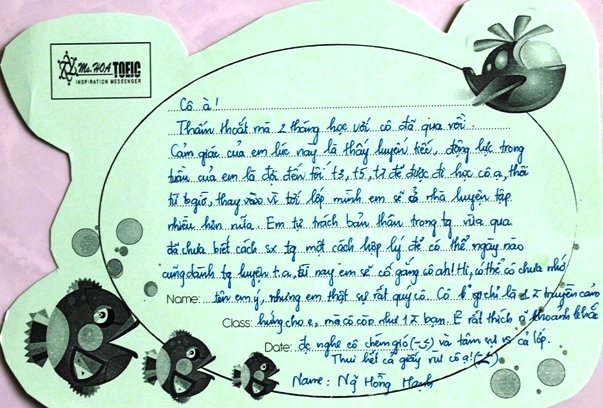 Ms. HOA TOEIC
INSPIRATION MESSENGER
Cô à!
Thấm thoắt mà 2 tháng học với cô đã qua rồi.
Cảm giác của em lúc này là thấy luyến tiếc, động lực trong
tuần của em là đợi đến tối t3, t5, t7 để được đi học cô ạ, thôi
từ bgiờ, thay vào vì tới lớp mình em sẽ ở nhà luyện tập
nhiều hơn nữa. Em tự trách bản thân trong tg vừa qua
đã chưa biết cách sx tg một cách hợp lý để có thể ngày nào
cũng dành tg luyện t.a, từ nay em sẽ cố gắng cô ah! Hi, có thể cô chưa nhớ
Name: tên em ý, nhưng em thật sự rất quý cô. Cô k chỉ là 1 truyền cảm
Class: hứng cho e, mà cô còn như 1 bạn. E rất thích khoảnh khắc
Date: đc nghe cô chém gió (-_-) và tâm sự vs cả lớp.
Thư hết cả giấy rùi cô ạ! (-_-)
Name: Ng Hồng Hạnh